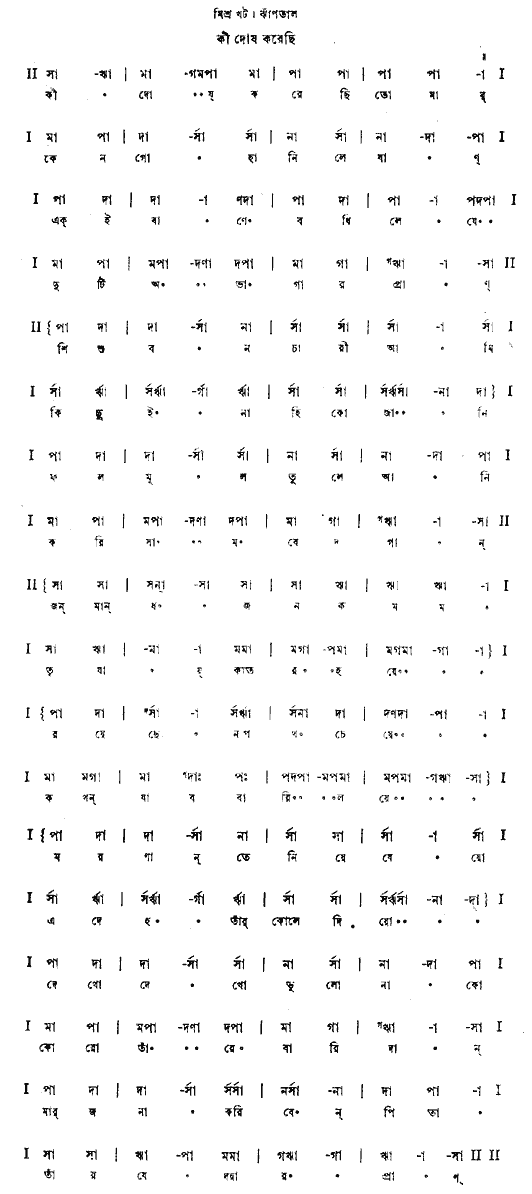 মিশ্র খট । ঝাঁপতাল
কী দোষ করেছি
II সা -ঋা | মা -গমপা মা | পা পা | পা পা -া I
কী • দো •• ষ্ ক রে ছি তো মা র্
I মা পা | দা -র্সা র্সা | না র্সা | না -দা -পা I
কে ন গো • হা নি লে বা • ণ্
I পা দা | দা -া ণদা | পা দা | পা -া পদপা I
এক্ ই বা • ণে• ব ধি লে • যে••
I মা পা | মপা -দণা দপা | মা গা | ᵍঋা -া -সা II
দু টি অ• •• ভা• গা র প্রা • ণ্
II {পা দা | দা -র্সা না | র্সা র্সা | র্সা -া র্সা I
শি শু ব • ন চা রী আ • মি
I র্সা র্ঋা | র্সর্ঋা -র্গা র্ঋা | র্সা র্সা | র্সর্ঋর্সা -না দা} I
কি ছু ই• • না হি কো জা•• • নি
I পা দা | দা -র্সা র্সা | না র্সা | না -দা পা I
ফ ল মূ • ল তু লে আ • নি
I মা পা | মপা -দণা দপা | মা গা | ᵍঋা -া -সা II
ক রি সা• •• ম• বে দ গা • ন্
II {সা সা | সন্া -সা সা | সা ঋা | ঋা ঋা -া I
জন্ মান্ ধ• • জ ন ক ম ম •
I সা ঋা | -মা -া মমা | মগা -পমা | মগমা -গা -া} I
তৃ ষা • য়্ কাত র • •হ য়ে•• • •
I {পা দা | র্সা -া র্সর্ঋা | র্সনা দা | দণদা -পা -া I
র য়ে ছে • নপ থ• চে য়ে•• • •
I মা মগা | মা দাঃ পঃ | পদপা -মপমা | মপমা -গঋা -সা} I
ক খন্ যা ব বা রি•• • •ল য়ে•• • • •
I {পা দা | দা -র্সা না | র্সা র্সা | র্সা -া র্সা I
ম র ণা ন্ তে নি য়ে যে • য়ো
I র্সা র্ঋা | র্সর্ঋা -র্গা র্ঋা | র্সা র্সা | র্সর্ঋর্সা -না -দা} I
এ দে হ• • তাঁর্ কোলে দি • য়ো•• • •
I পা দা | দা -র্সা র্সা | না র্সা | না -দা পা I
দে খো দে • খো ভু লো না • কো
I মা পা | মপা -দণা দপা | মা গা | ᵍঋা -া -সা I
কো রো তাঁ• •• রে• বা রি দা • ন্
I পা দা | দা -র্সা র্সর্সা | নর্সা -না | দা পা -া I
মার্ জ না • করি বে• ন্ পি তা •
I সা সা | ঋা -পা মমা | গঋা -গা | ঋা -া -সা II II
তাঁ র যে • দয়া র• • প্রা • ণ্